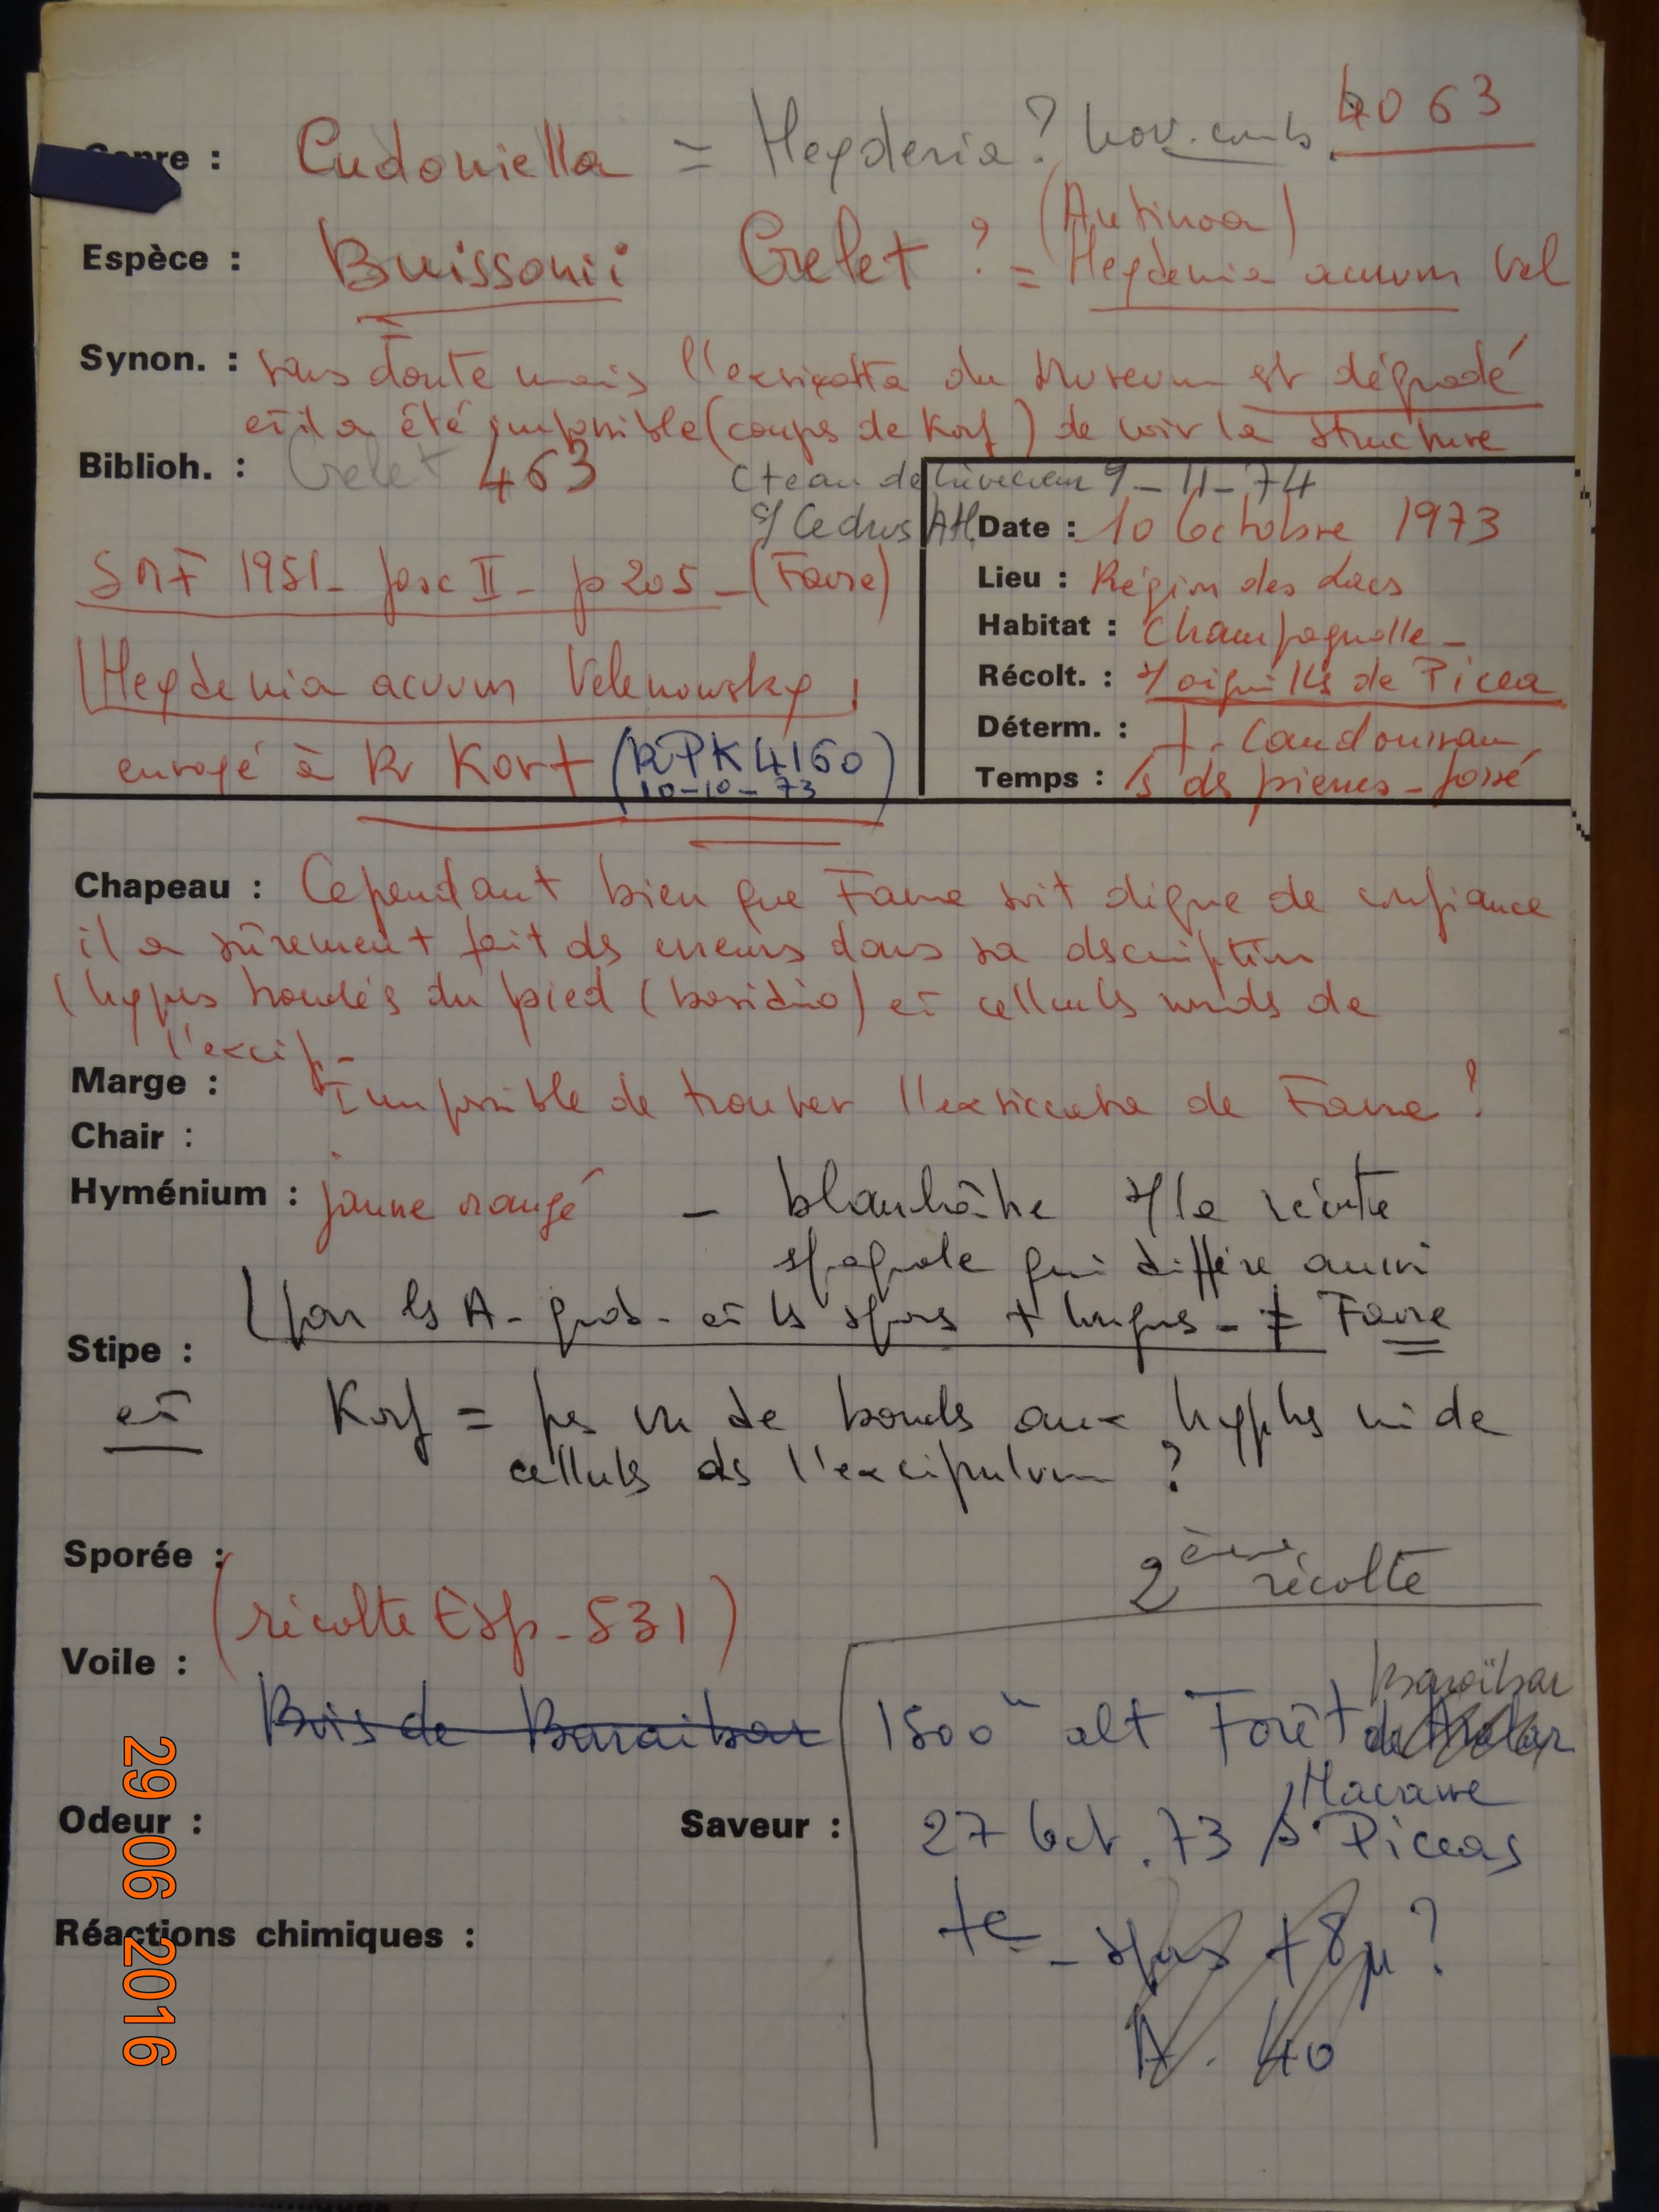 4063
Genre : Cudoniella = Heyderia ? nov. comb.
(Antinoa)
Espèce : Buissonii Grelet ? = Heyderia acuum Vel
Synon. : sans doute mais l'exsiccata du Museum est dégradé
et il a été impossible (coupes de Korf) de voir la structure
Biblioh. : Grelet 463
Cteau de 9-11-74
s/ Cedrus Atl.
SMF 1951 - fasc II - p 205 - (Favre)
Heyderia acuum Velenowsky,
envoyé à R Korf (RPK 4160
10-10-73)
Date : 10 Octobre 1973
Lieu : Région des Lacs
Habitat : Champagnolle -
Récolt. : s/ aiguilles de Picea
Déterm. : + - Candoussau
Temps : ds pierres - fossé
Chapeau : Cependant bien que Favre soit digne de confiance
il a sûrement fait des erreurs dans sa description
(hyphes bouclés du pied (basidio) et cellules rondes de
l'excip -
Marge : Impossible de trouver l'exsiccata de Favre ?
Chair :
Hyménium : jaune orangé - blanchâtre s/ la récolte
espagnole qui diffère aussi
par ls A - et ls spores + longues - ≠ Favre
Stipe :
et Korf = pas vu de boucles aux hyphes ni de
cellules ds l'excipulum ?
Sporée :
2ème récolte
(récolte Esp - 531)
Voile :
Bois de Baraibar
Baraïbar
1500m alt Forêt de
Navarre
Odeur :
Saveur :
27 Oct. 73 s. Piceas
Réactions chimiques :
te - spores + 8 µ ?
A. 40
29 06 2016